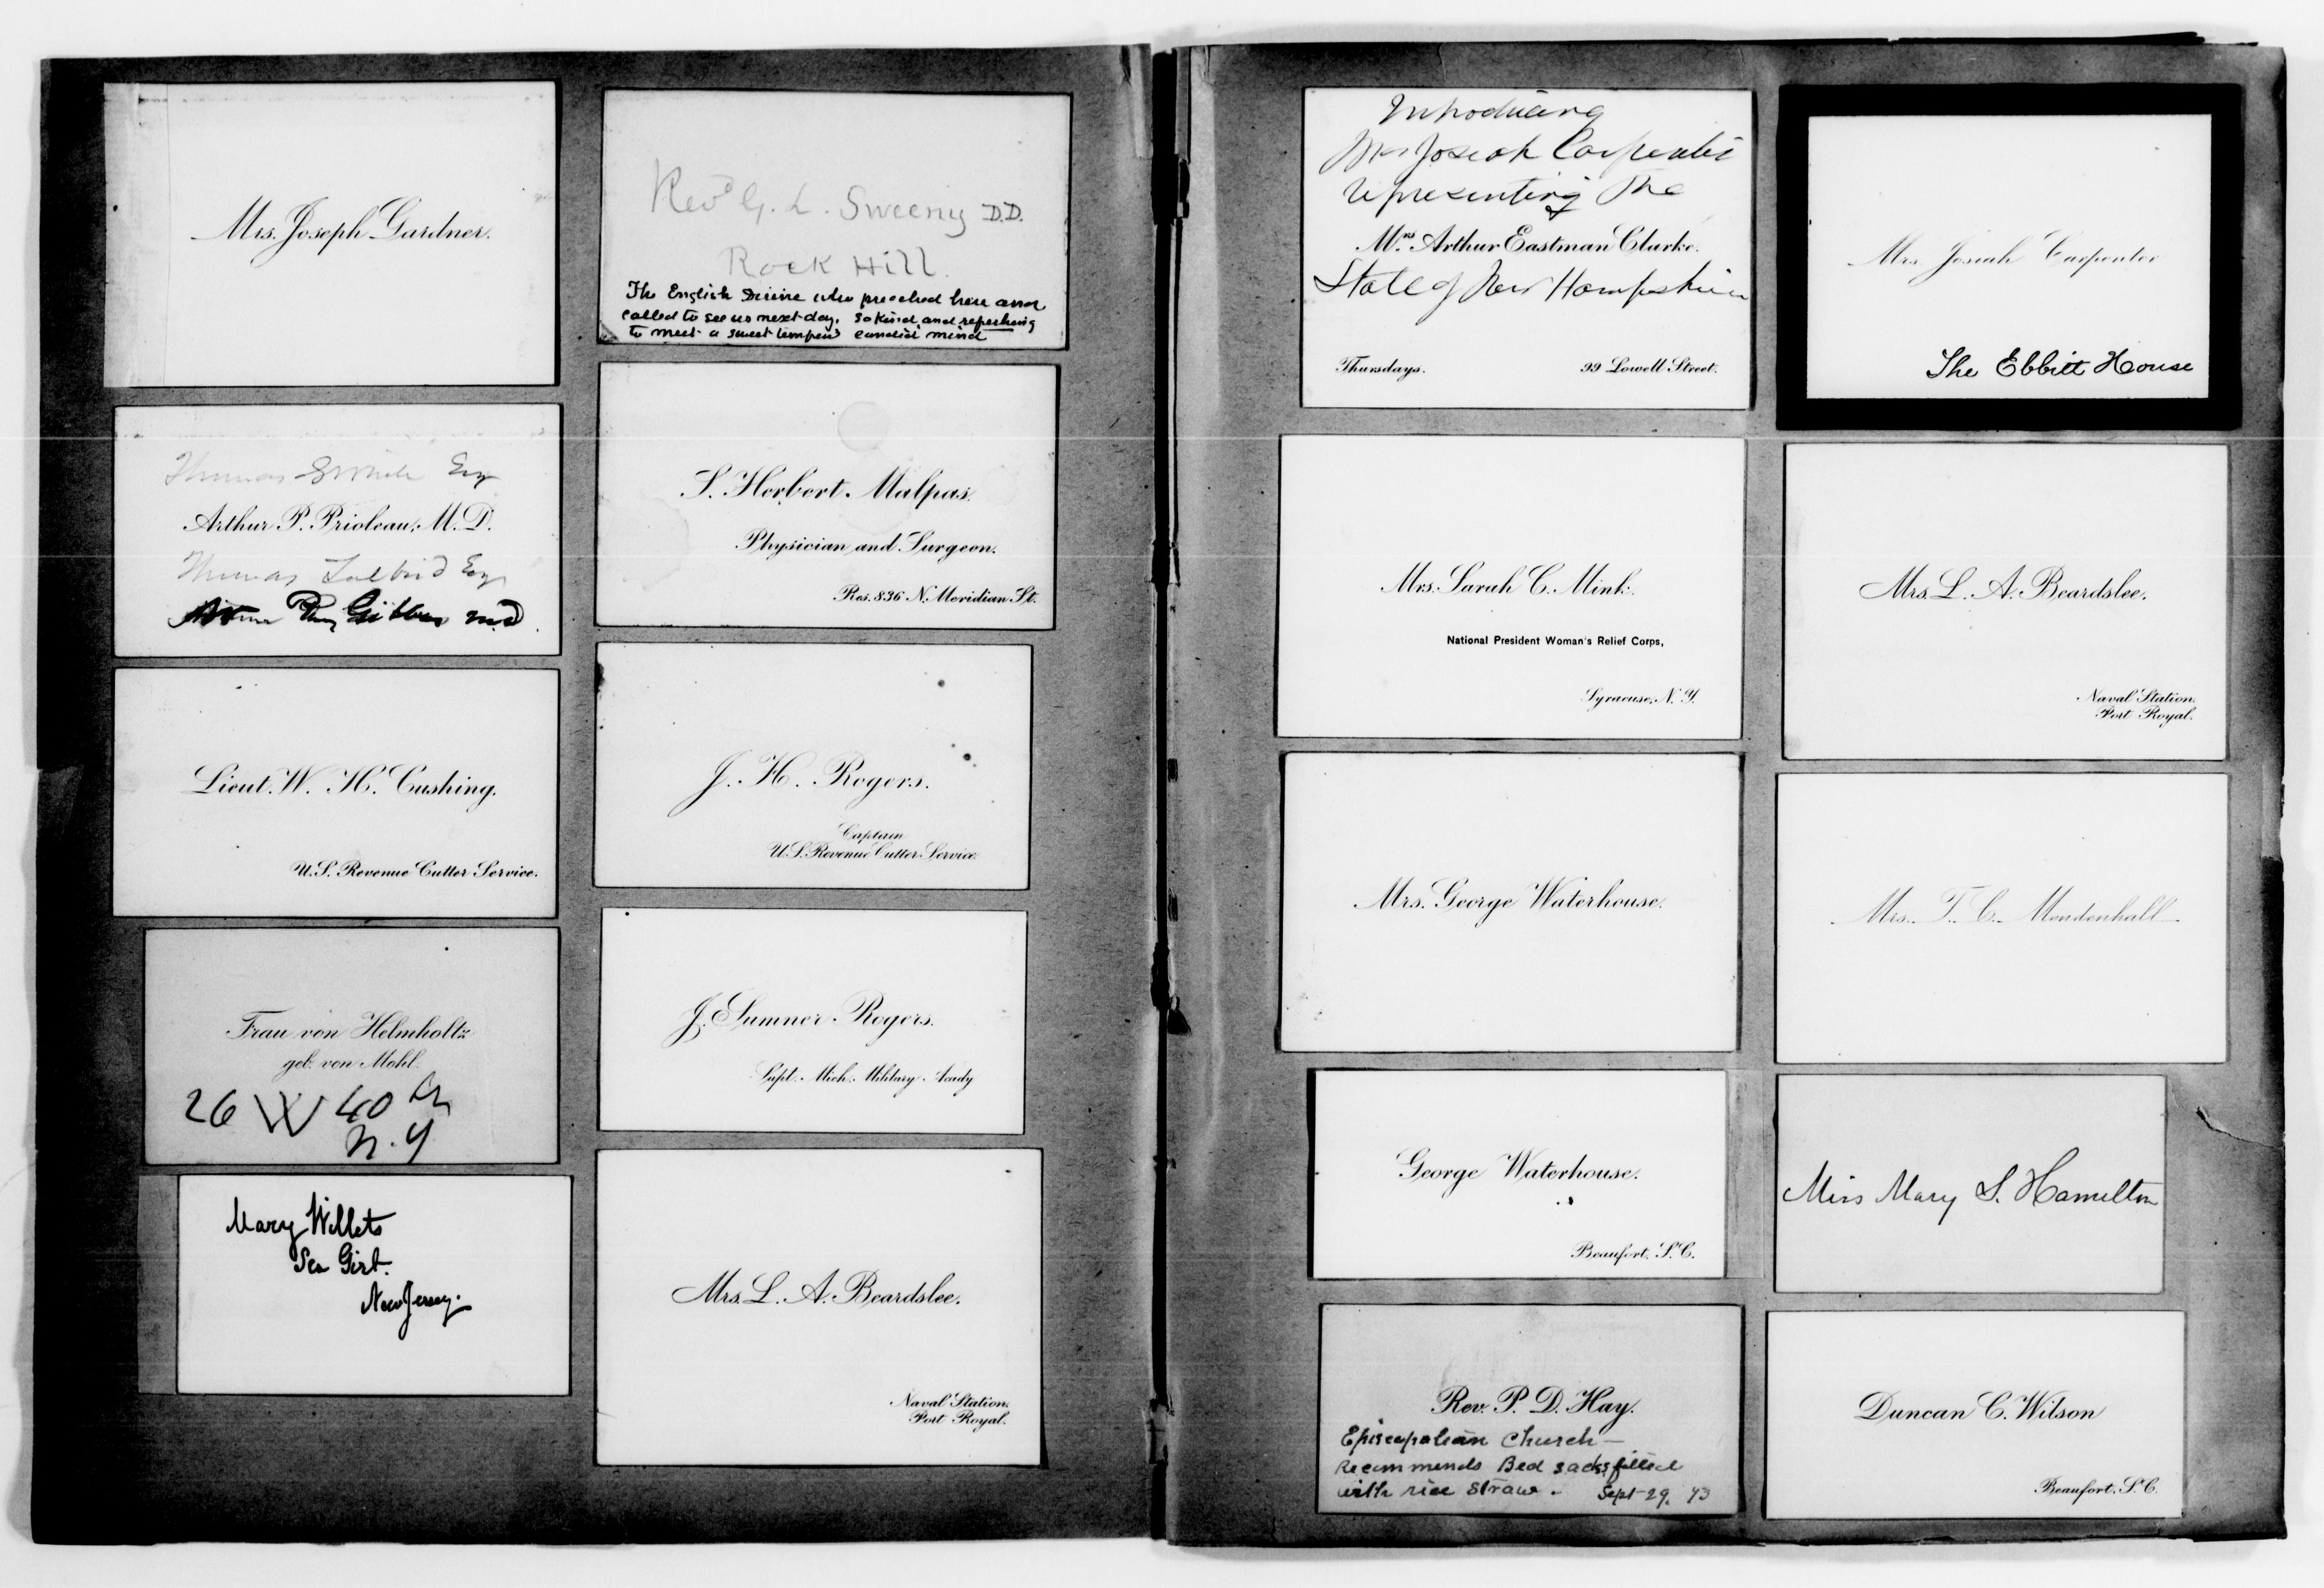 Mrs. Joseph Gardner.
Thomas Esq
Arthur P. Prioleau, M.D.
Thomas Talbird Esq
Gibbes M.D.
Lieut. W. H. Cushing.
U.S. Revenue Cutter Service.
Frau von Helmholtz
geb. von Mohl.
26 W 40th
N.Y
Mary Willets
Sea Girt.
New Jersey.
Revd G. L. Sweeny D.D.
Rock Hill.
The English Divine who preached here and
called to see us next day. So kind and refreshing
to meet a sweet temperd candid mind
S. Herbert Malpas.
Physician and Surgeon.
Res. 836 N. Meridian St.
J. H. Rogers.
Captain
U.S. Revenue Cutter Service.
J. Sumner Rogers.
Supt. Mich. Military Acady
Mrs. L. A. Beardslee.
Naval Station.
Port Royal.
Introducing
Mrs Josiah Carpenter
representing the
Mrs. Arthur Eastman Clarke.
State of New Hampshire
Thursdays.
99 Lowell Street.
Mrs Josiah Carpenter
The Ebbitt House
Mrs. Sarah C. Mink.
National President Woman's Relief Corps,
Syracuse, N. Y.
Mrs. L. A. Beardslee.
Naval Station.
Port Royal.
Mrs. George Waterhouse.
Mrs. T. C. Mendenhall
George Waterhouse.
Beaufort, S.C.
Miss Mary S. Hamilton
Rev. P. D. Hay.
Episcopalian Church —
Recommends Bed sacks filled
with rice straw. Sept 29. 93
Duncan C. Wilson
Beaufort, S.C.